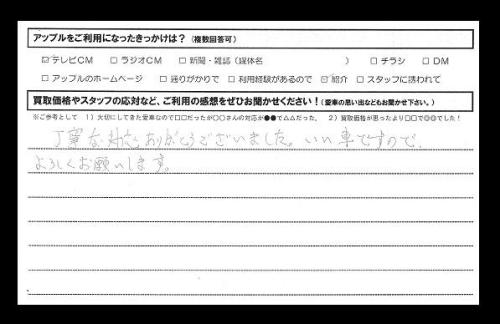 アップルをご利用になったきっかけは？（複数回答可）
☑テレビCM □ラジオCM □新聞・雑誌（媒体名 ） □チラシ □DM
□アップルのホームページ □通りがかりで □利用経験があるので ☑紹介 □スタッフに誘われて
買取価格やスタッフの応対など、ご利用の感想をぜひお聞かせください！（愛車の思い出などもお聞かせ下さい。）
※ご参考として 1）大切にしてきた愛車なので□□だったが○○さんの対応が●●で△△だった。 2）買取価格が思ったより□□で◎◎でした！
丁寧な対応ありがとうございました。いい車ですので、
よろしくお願いします。